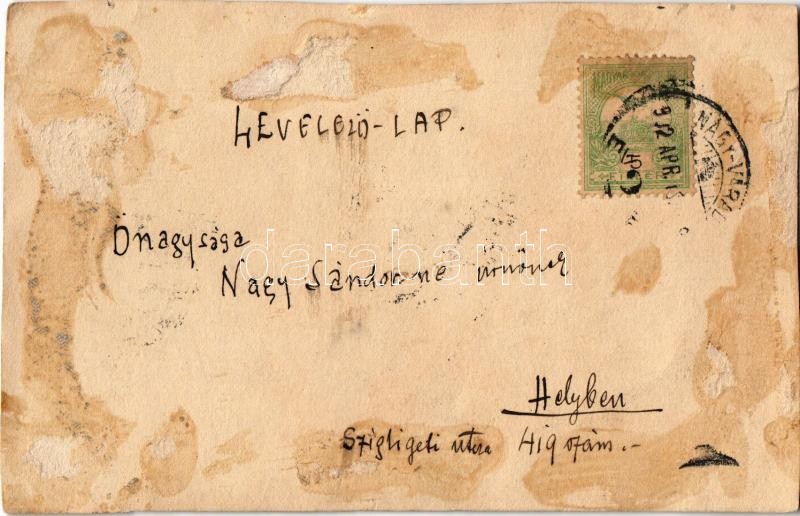 LEVELEZŐ-LAP.
NAGY-VÁRAD
912 APR.
Önagysága
Nagy Sándorné úrnőnek
darabanth
Helyben
Szigligeti utcza 419 szám.-